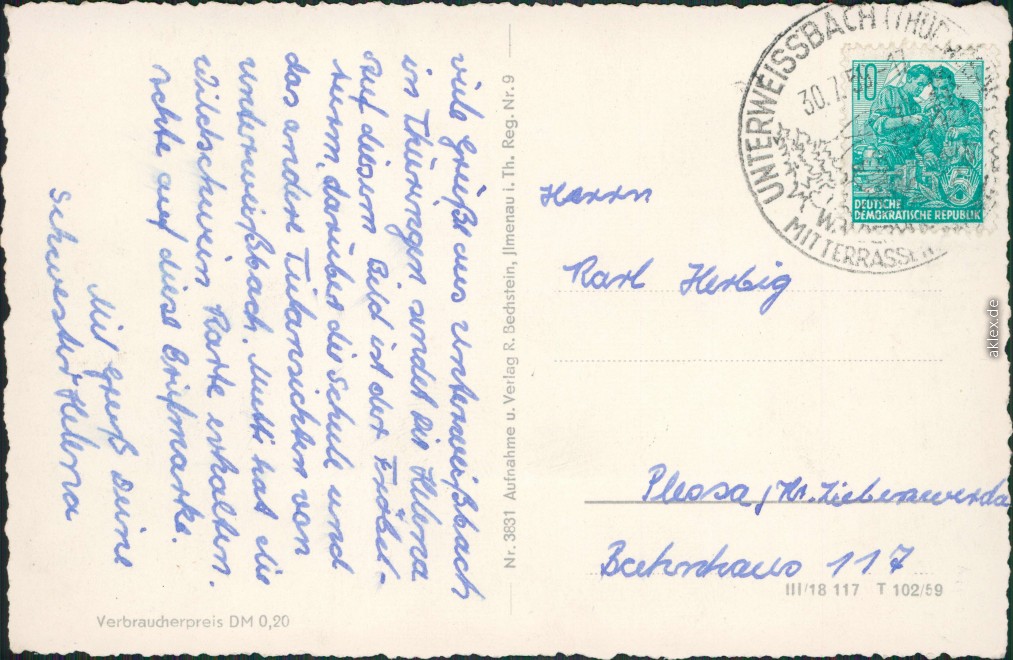 viele Grüße aus Unterweißbach
in Thüringen sendet dir Helena
auf diesem Bild ist der Fröbel-
turm, darüber die Schule und
das andere Tielansichten von
Unterweißbach. Mutti hat die
Wildschwein Karte erhalten.
Achte auf diese Briefmarke.
Mit Gruß Deine
Schwester Helena
Verbraucherpreis DM 0,20
Nr. 3831 Aufnahme u. Verlag R. Bechstein, Jlmenau i. Th. Reg. Nr. 9
UNTERWEISSBACH (THÜR
30.7.
MIT TERRASSEN
10
5
DEUTSCHE
DEMOKRATISCHE REPUBLIK
Herrn
Karl Herbig
Plessa, Kr. Liebenwerda
Bahnhaus 117
III/18 117 T 102/59
aklex.de